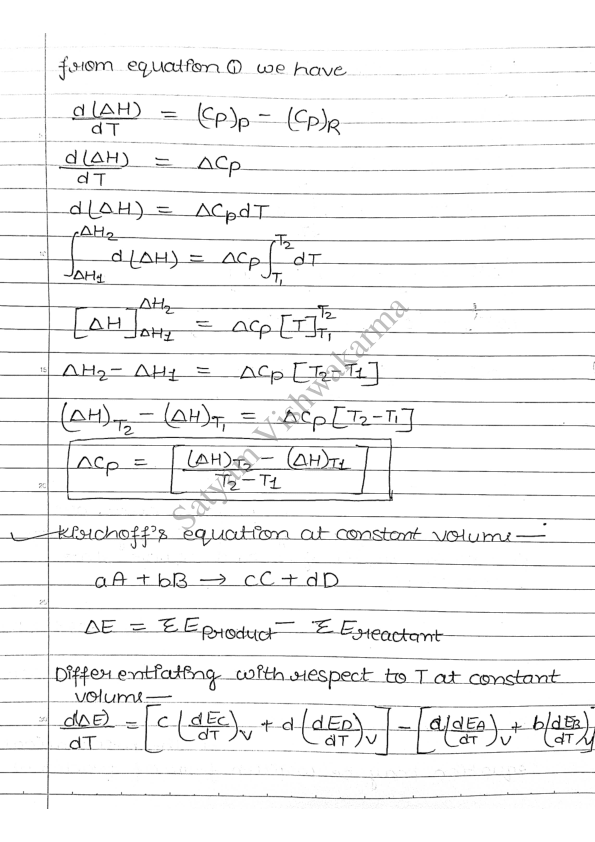 from equation ① we have
d(ΔH)/dT = (Cp)p - (Cp)R
d(ΔH)/dT = ΔCp
d(ΔH) = ΔCpdT
∫_{ΔH1}^{ΔH2} d(ΔH) = ΔCp ∫_{T1}^{T2} dT
[ΔH]_{ΔH1}^{ΔH2} = ΔCp [T]_{T1}^{T2}
ΔH2 - ΔH1 = ΔCp [T2-T1]
(ΔH)T2 - (ΔH)T1 = ΔCp [T2-T1]
ΔCp = [(ΔH)T2 - (ΔH)T1 / T2-T1]
Satyam Vishwakarma
Kirchoff's equation at constant volume—
aA + bB → cC + dD
ΔE = ΣEproduct - ΣEreactant
Differentiating with respect to T at constant
volume—
d(ΔE)/dT = [c(dEC/dT)v + d(dED/dT)v] - [a(dEA/dT)v + b(dEB/dT)v